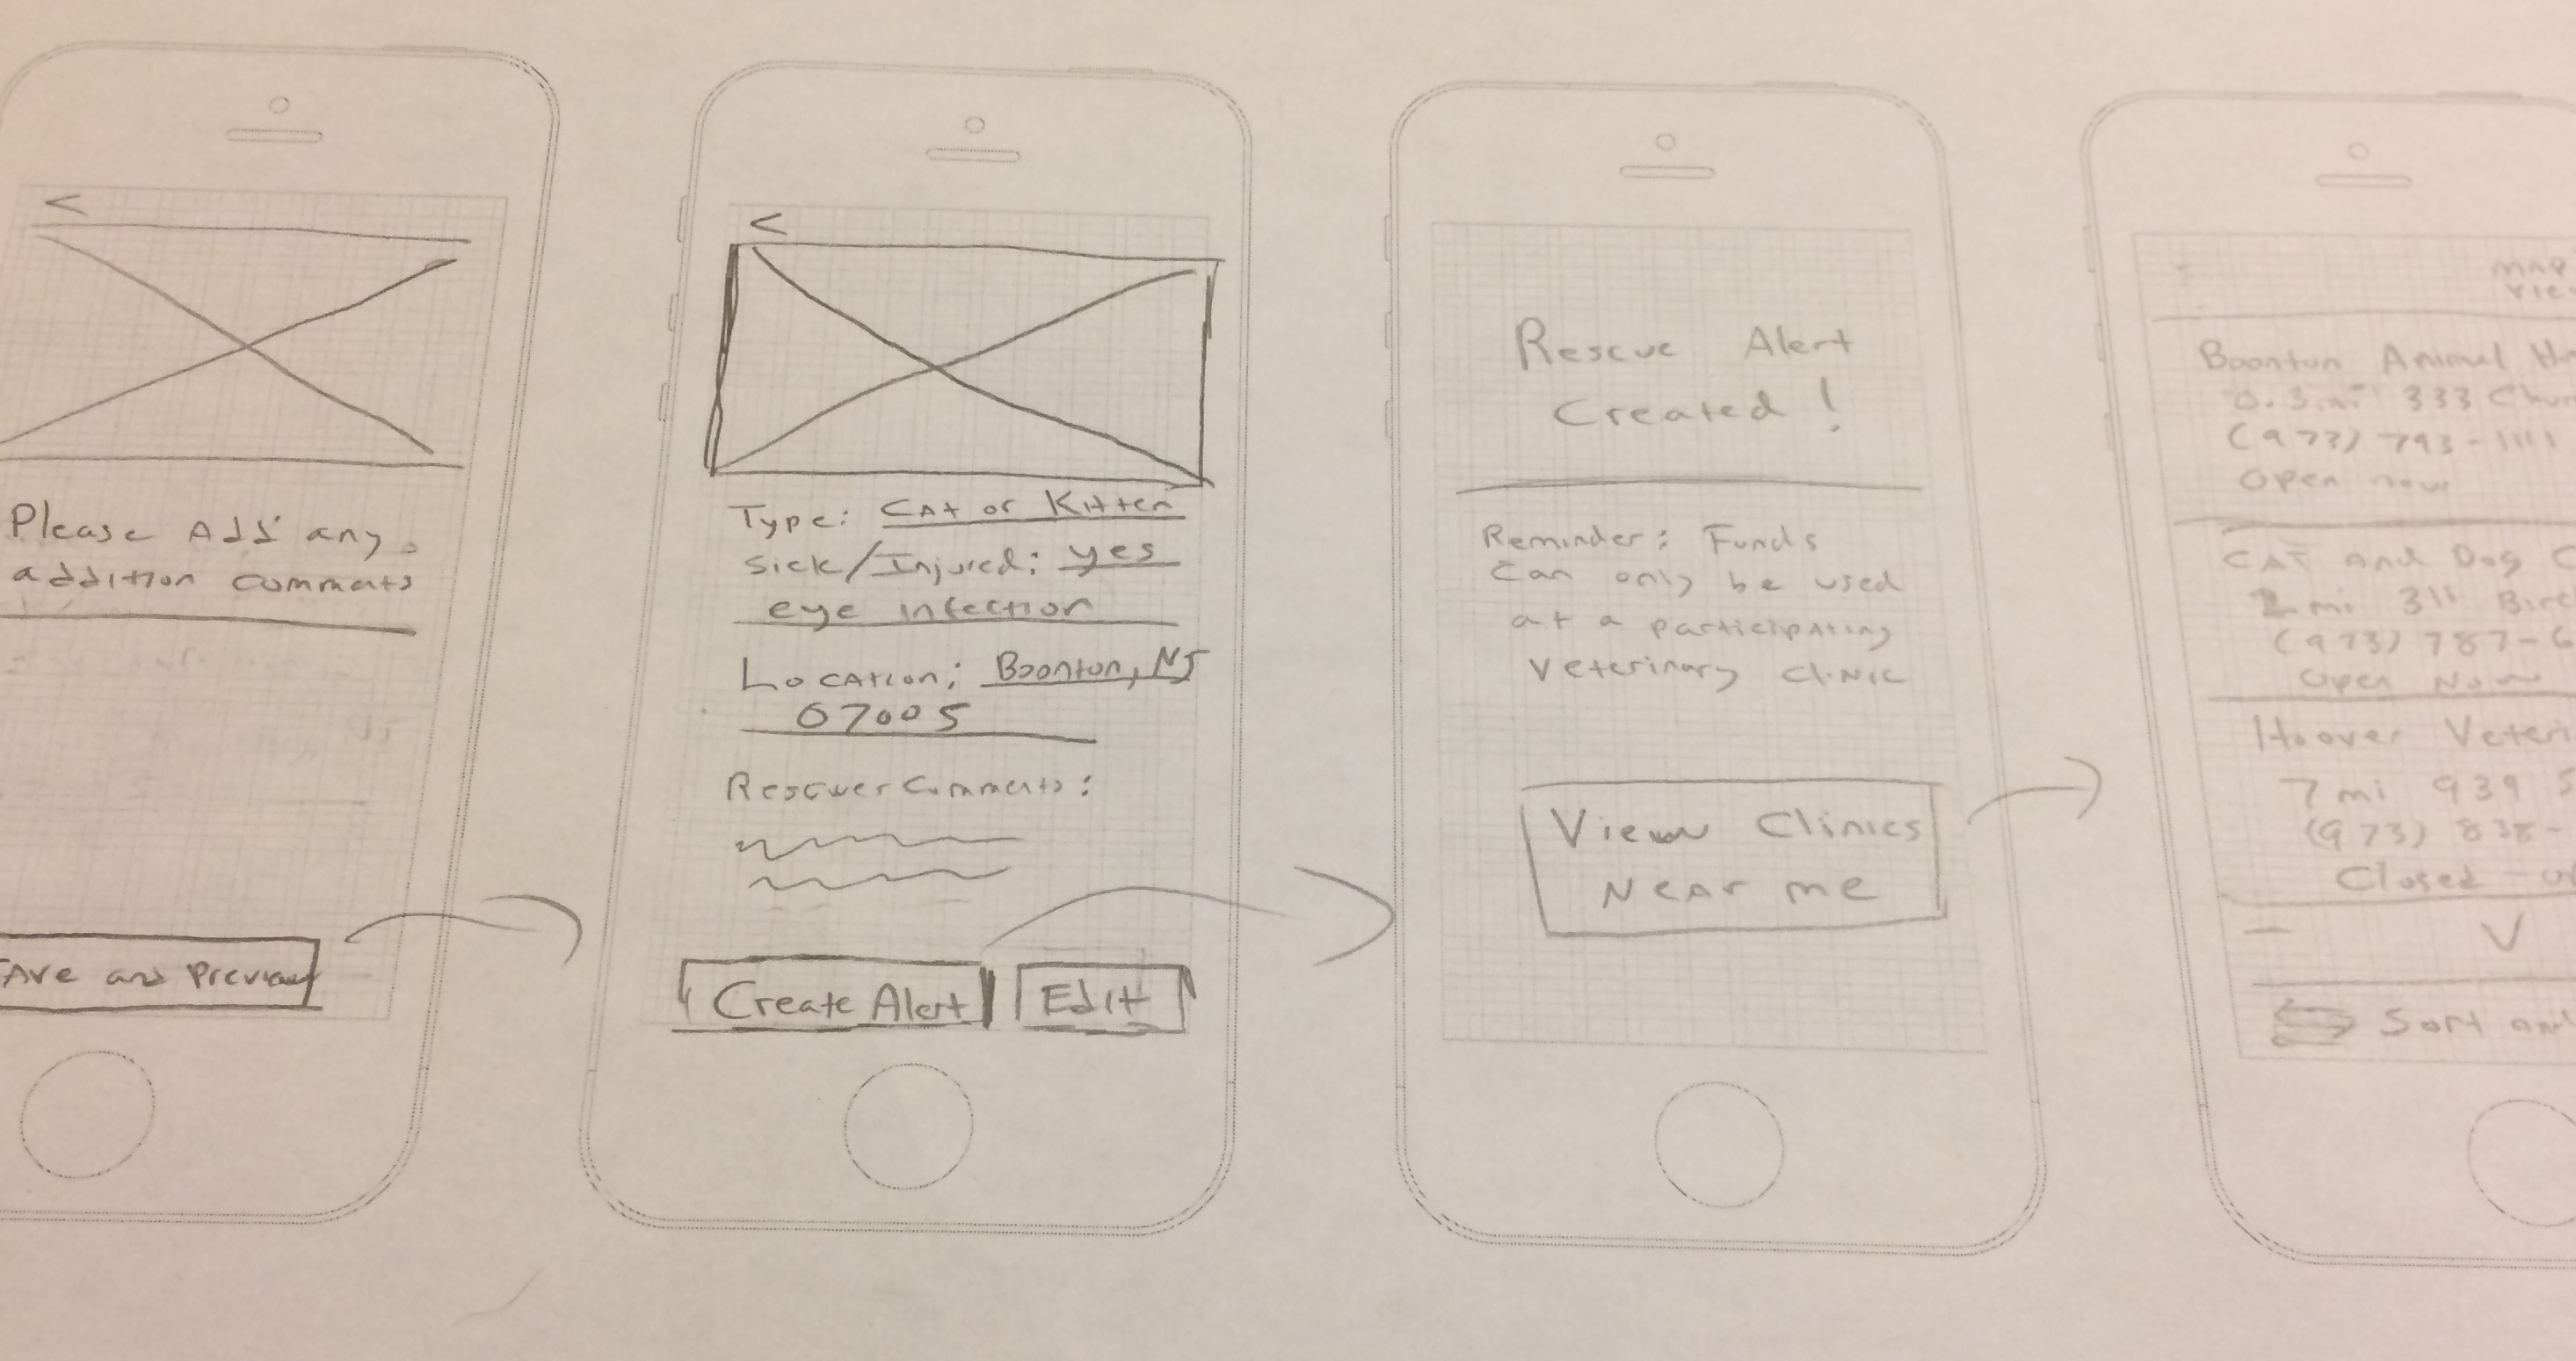 <
Please Add any
addition comments
Save and Preview
<
Type: Cat or Kitten
Sick/Injured: yes
eye infection
Location: Boonton, NJ
07005
Rescuer Comments:
Create Alert
Edit
Rescue Alert
Created!
Reminder: Funds
can only be used
at a participating
Veterinary Clinic
View Clinics
Near me
Map
Boonton Animal
0.3 mi 333
(973) 793-1111
Open now
Cat and Dog
mi 311
(973) 787-6
Open Now
Hoover
7 mi 939
(973) 838-
Closed
Sort and